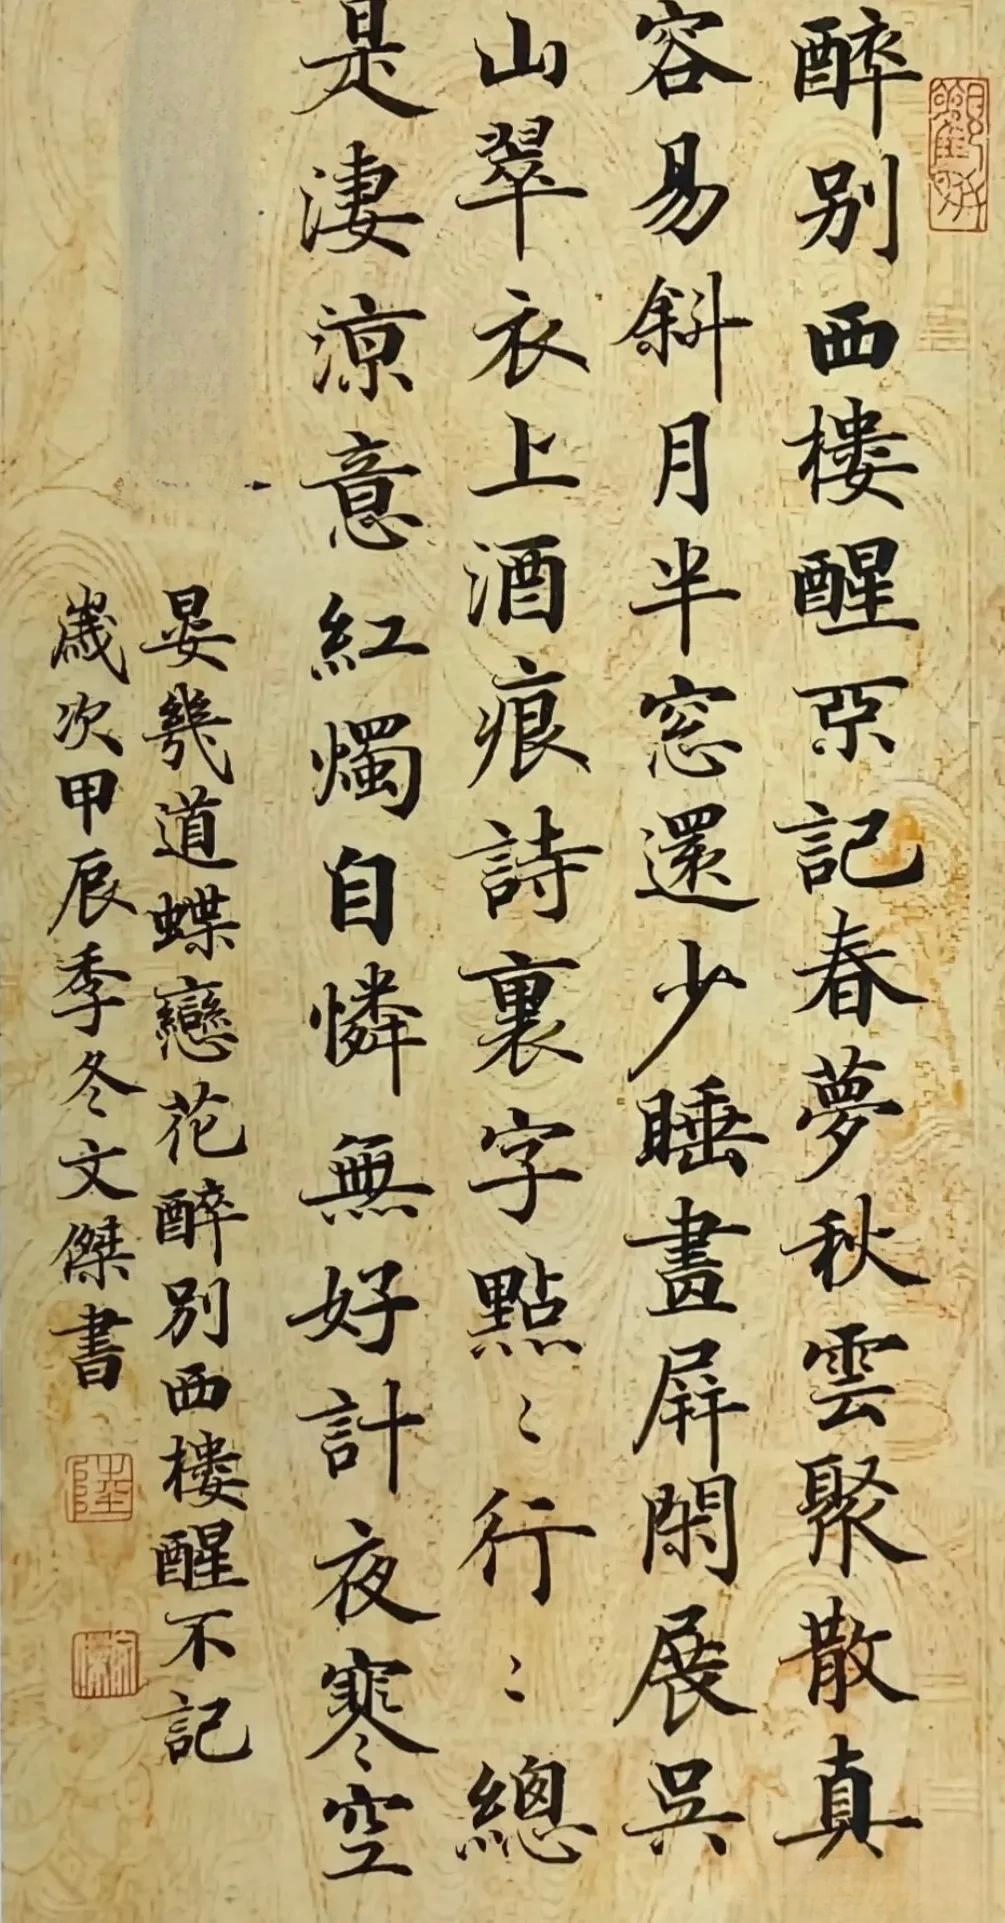 醉别西樓醒不記春夢秋雲聚散真
容易斜月半窓還少睡畫屏閑展吳
山翠衣上酒痕詩裏字點〻行〻總
是淒涼意紅燭自憐無好計夜寒空
晏幾道蝶戀花醉别西樓醒不記
歲次甲辰季冬文傑書
陸